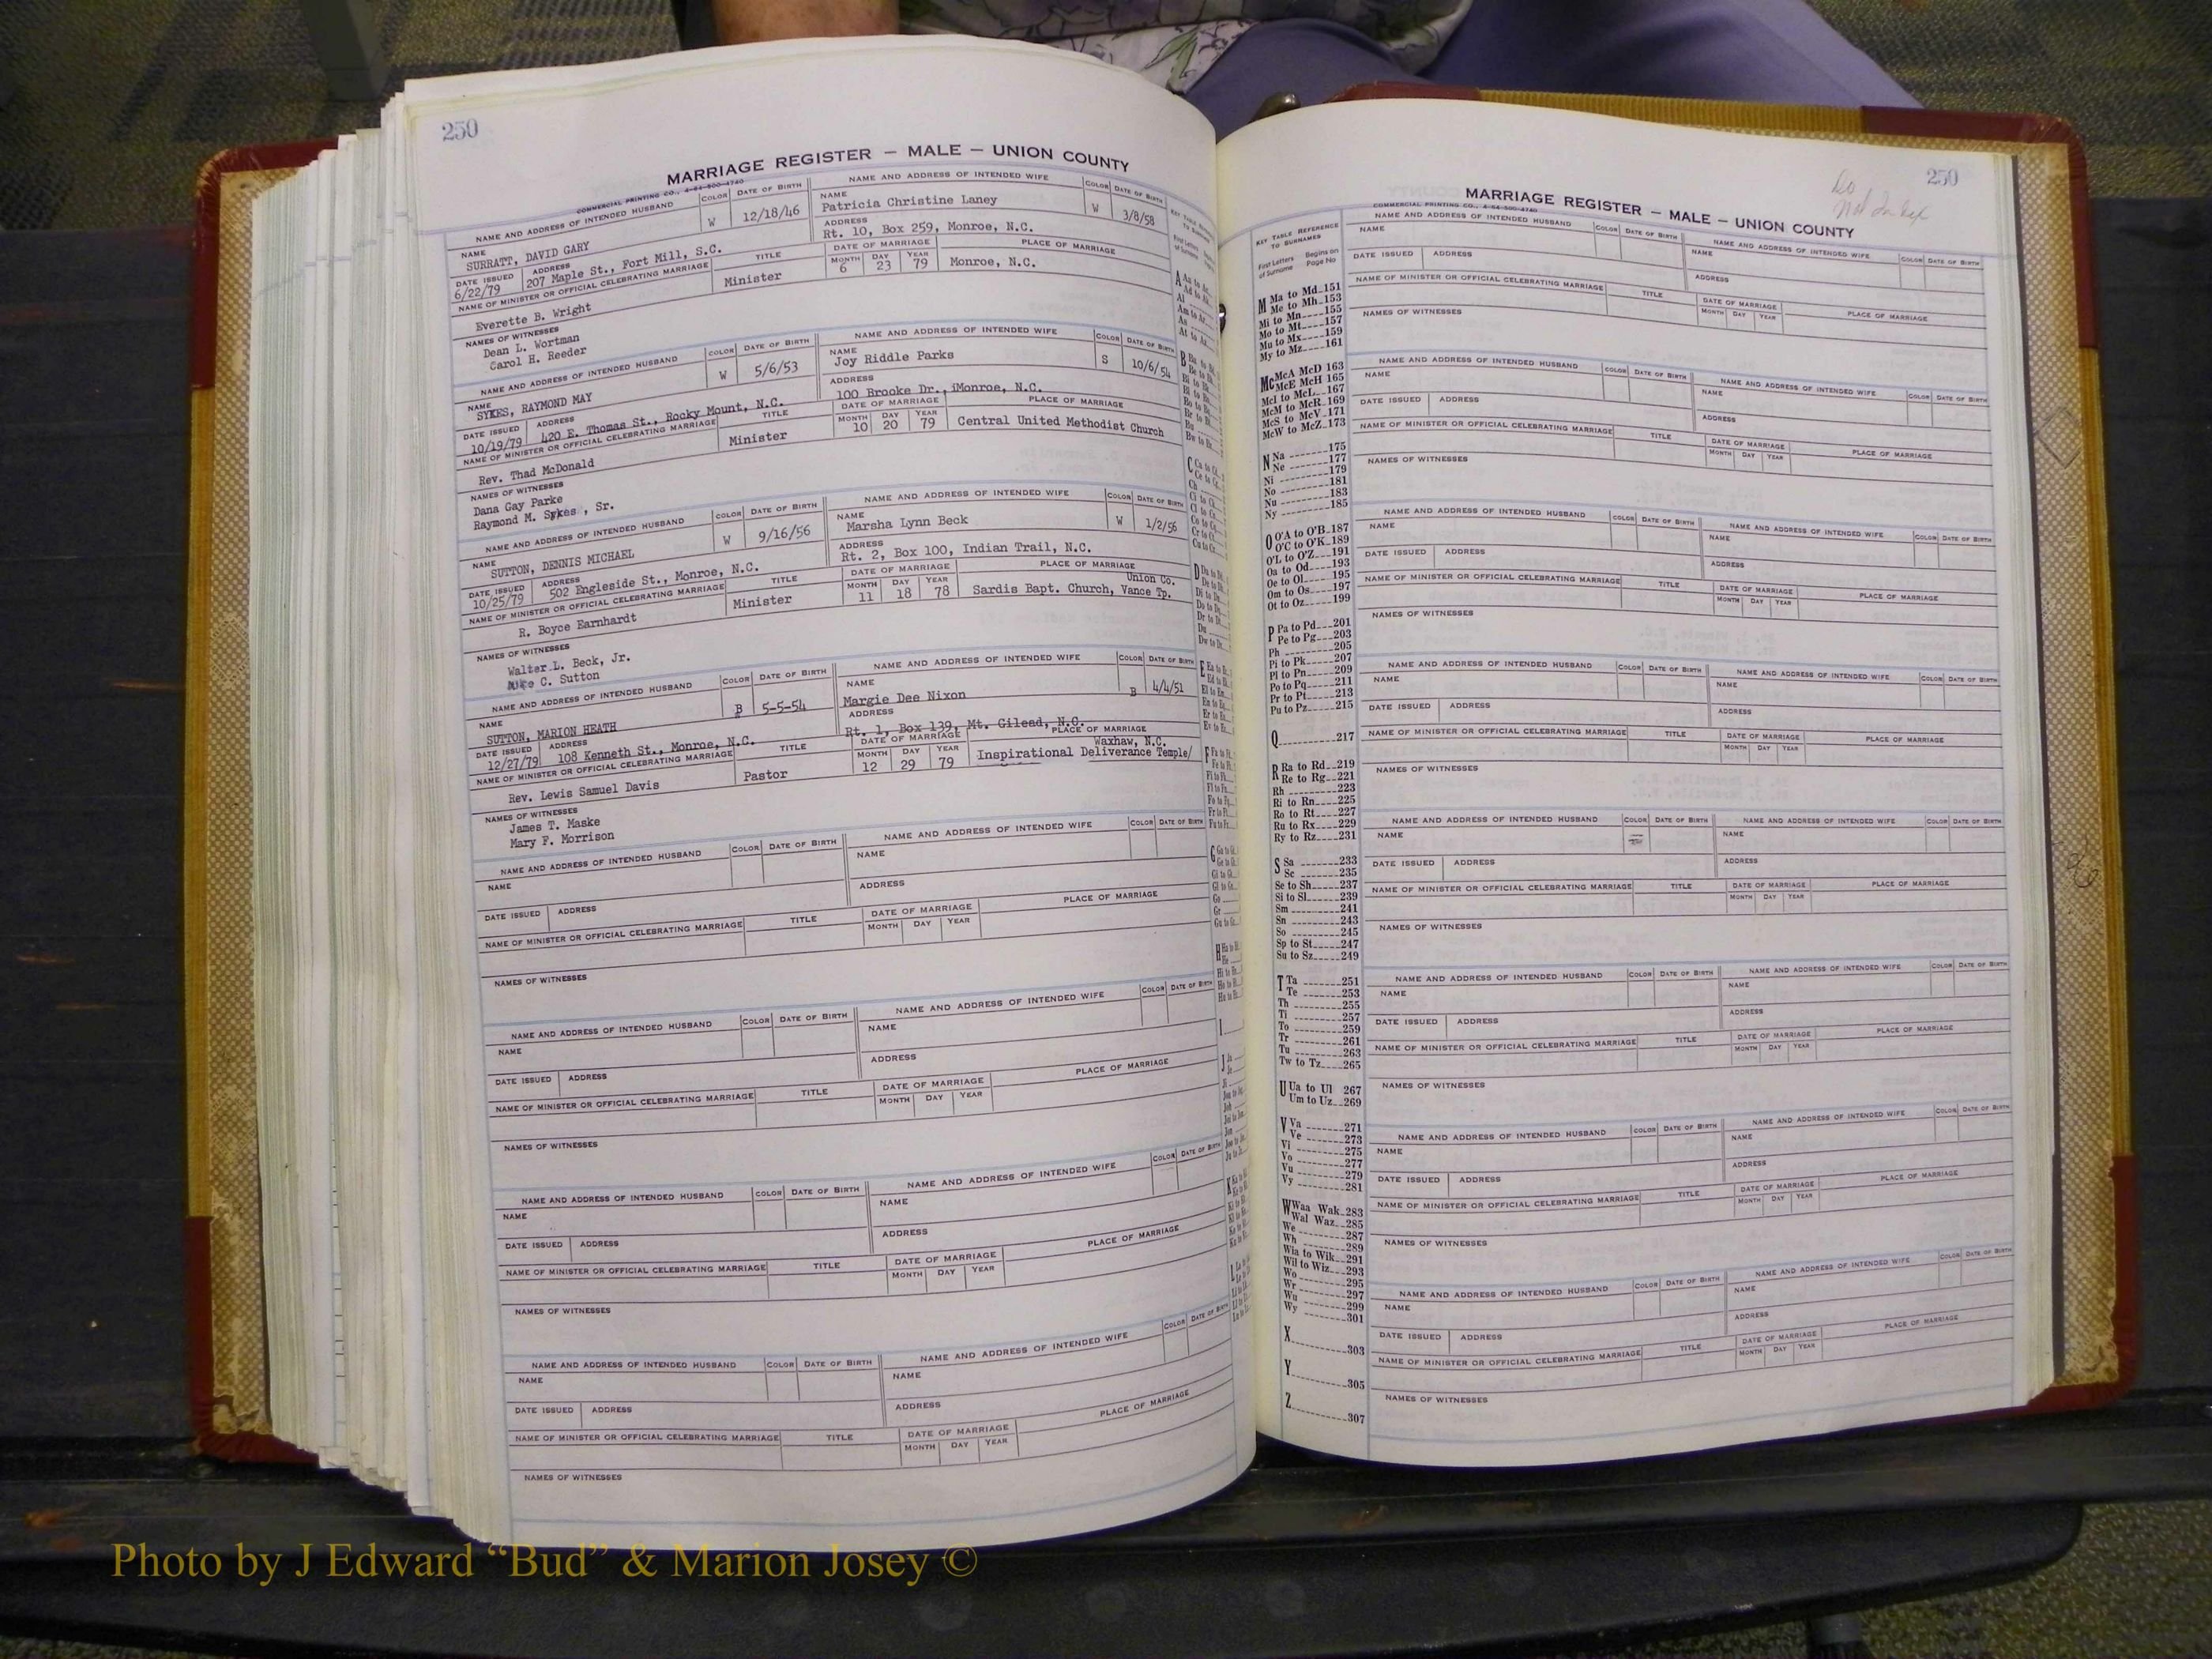 250
MARRIAGE REGISTER — MALE — UNION COUNTY
COMMERCIAL PRINTING CO., 4-64-500-4740
NAME AND ADDRESS OF INTENDED HUSBAND COLOR DATE OF BIRTH NAME AND ADDRESS OF INTENDED WIFE COLOR DATE OF BIRTH
NAME SURRATT, DAVID GARY W 12/18/46 NAME Patricia Christine Laney W 3/8/58
DATE ISSUED 6/22/79 ADDRESS 207 Maple St., Fort Mill, S.C. ADDRESS Rt. 10, Box 259, Monroe, N.C.
NAME OF MINISTER OR OFFICIAL CELEBRATING MARRIAGE TITLE DATE OF MARRIAGE PLACE OF MARRIAGE
MONTH DAY YEAR
Everette B. Wright Minister 6 23 79 Monroe, N.C.
NAMES OF WITNESSES
Dean L. Wortman
Carol H. Reeder
NAME AND ADDRESS OF INTENDED HUSBAND COLOR DATE OF BIRTH NAME AND ADDRESS OF INTENDED WIFE COLOR DATE OF BIRTH
NAME SYKES, RAYMOND MAY W 5/6/53 NAME Joy Riddle Parks S 10/6/54
DATE ISSUED 10/19/79 ADDRESS 420 E. Thomas St., Rocky Mount, N.C. ADDRESS 100 Brooke Dr., iMonroe, N.C.
NAME OF MINISTER OR OFFICIAL CELEBRATING MARRIAGE TITLE DATE OF MARRIAGE PLACE OF MARRIAGE
MONTH DAY YEAR
Rev. Thad McDonald Minister 10 20 79 Central United Methodist Church
NAMES OF WITNESSES
Dana Gay Parke
Raymond M. Sykes , Sr.
NAME AND ADDRESS OF INTENDED HUSBAND COLOR DATE OF BIRTH NAME AND ADDRESS OF INTENDED WIFE COLOR DATE OF BIRTH
NAME SUTTON, DENNIS MICHAEL W 9/16/56 NAME Marsha Lynn Beck W 1/2/56
DATE ISSUED 10/25/79 ADDRESS 502 Engleside St., Monroe, N.C. ADDRESS Rt. 2, Box 100, Indian Trail, N.C.
NAME OF MINISTER OR OFFICIAL CELEBRATING MARRIAGE TITLE DATE OF MARRIAGE PLACE OF MARRIAGE
MONTH DAY YEAR Union Co.
R. Boyce Earnhardt Minister 11 18 78 Sardis Bapt. Church, Vance Tp.
NAMES OF WITNESSES
Walter L. Beck, Jr.
C. Sutton
NAME AND ADDRESS OF INTENDED HUSBAND COLOR DATE OF BIRTH NAME AND ADDRESS OF INTENDED WIFE COLOR DATE OF BIRTH
NAME SUTTON, MARION HEATH B 5-5-54 NAME Margie Dee Nixon B 4/4/51
DATE ISSUED 12/27/79 ADDRESS 108 Kenneth St., Monroe, N.C. ADDRESS Rt. 1, Box 139, Mt. Gilead, N.C.
NAME OF MINISTER OR OFFICIAL CELEBRATING MARRIAGE TITLE DATE OF MARRIAGE PLACE OF MARRIAGE
MONTH DAY YEAR Waxhaw, N.C.
Rev. Lewis Samuel Davis Pastor 12 29 79 Inspirational Deliverance Temple/
NAMES OF WITNESSES
James T. Maske
Mary F. Morrison
NAME AND ADDRESS OF INTENDED HUSBAND COLOR DATE OF BIRTH NAME AND ADDRESS OF INTENDED WIFE COLOR DATE OF BIRTH
NAME NAME
DATE ISSUED ADDRESS ADDRESS
NAME OF MINISTER OR OFFICIAL CELEBRATING MARRIAGE TITLE DATE OF MARRIAGE PLACE OF MARRIAGE
MONTH DAY YEAR
NAMES OF WITNESSES
NAME AND ADDRESS OF INTENDED HUSBAND COLOR DATE OF BIRTH NAME AND ADDRESS OF INTENDED WIFE COLOR DATE OF BIRTH
NAME NAME
DATE ISSUED ADDRESS ADDRESS
NAME OF MINISTER OR OFFICIAL CELEBRATING MARRIAGE TITLE DATE OF MARRIAGE PLACE OF MARRIAGE
MONTH DAY YEAR
NAMES OF WITNESSES
NAME AND ADDRESS OF INTENDED HUSBAND COLOR DATE OF BIRTH NAME AND ADDRESS OF INTENDED WIFE COLOR DATE OF BIRTH
NAME NAME
DATE ISSUED ADDRESS ADDRESS
NAME OF MINISTER OR OFFICIAL CELEBRATING MARRIAGE TITLE DATE OF MARRIAGE PLACE OF MARRIAGE
MONTH DAY YEAR
NAMES OF WITNESSES
NAME AND ADDRESS OF INTENDED HUSBAND COLOR DATE OF BIRTH NAME AND ADDRESS OF INTENDED WIFE COLOR DATE OF BIRTH
NAME NAME
DATE ISSUED ADDRESS ADDRESS
NAME OF MINISTER OR OFFICIAL CELEBRATING MARRIAGE TITLE DATE OF MARRIAGE PLACE OF MARRIAGE
MONTH DAY YEAR
NAMES OF WITNESSES
250
Do
Not Index
MARRIAGE REGISTER — MALE — UNION COUNTY
COMMERCIAL PRINTING CO., 4-64-500-4740
KEY TABLE REFERENCE
TO SURNAMES
First Letters of Surname Begins on Page No
M Ma to Md 151
Me to Mh 153
Mi to Mn 155
Mo to Mt 157
Mu to Mx 159
My to Mz 161
Mc McA McD 163
McE McH 165
McI to McL 167
McM to McR 169
McS to McV 171
McW to McZ 173
N Na 175
Ne 177
Ni 179
No 181
Nu 183
Ny 185
O O'A to O'B 187
O'C to O'K 189
O'L to O'Z 191
Oa to Od 193
Oe to Ol 195
Om to Os 197
Ot to Oz 199
P Pa to Pd 201
Pe to Pg 203
Ph 205
Pi to Pk 207
Pl to Pn 209
Po to Pq 211
Pr to Pt 213
Pu to Pz 215
Q 217
R Ra to Rd 219
Re to Rg 221
Rh 223
Ri to Rn 225
Ro to Rt 227
Ru to Rx 229
Ry to Rz 231
S Sa 233
Sc 235
Se to Sh 237
Si to Sl 239
Sm 241
Sn 243
So 245
Sp to St 247
Su to Sz 249
T Ta 251
Te 253
Th 255
Ti 257
To 259
Tr 261
Tu 263
Tw to Tz 265
U Ua to Ul 267
Um to Uz 269
V Va 271
Ve 273
Vi 275
Vo 277
Vu 279
Vy 281
W Waa Wak 283
Wal Waz 285
We 287
Wh 289
Wia to Wik 291
Wil to Wiz 293
Wo 295
Wr 297
Wu 299
Wy 301
X 303
Y 305
Z 307
NAME AND ADDRESS OF INTENDED HUSBAND COLOR DATE OF BIRTH NAME AND ADDRESS OF INTENDED WIFE COLOR DATE OF BIRTH
NAME NAME
DATE ISSUED ADDRESS ADDRESS
NAME OF MINISTER OR OFFICIAL CELEBRATING MARRIAGE TITLE DATE OF MARRIAGE PLACE OF MARRIAGE
MONTH DAY YEAR
NAMES OF WITNESSES
NAME AND ADDRESS OF INTENDED HUSBAND COLOR DATE OF BIRTH NAME AND ADDRESS OF INTENDED WIFE COLOR DATE OF BIRTH
NAME NAME
DATE ISSUED ADDRESS ADDRESS
NAME OF MINISTER OR OFFICIAL CELEBRATING MARRIAGE TITLE DATE OF MARRIAGE PLACE OF MARRIAGE
MONTH DAY YEAR
NAMES OF WITNESSES
NAME AND ADDRESS OF INTENDED HUSBAND COLOR DATE OF BIRTH NAME AND ADDRESS OF INTENDED WIFE COLOR DATE OF BIRTH
NAME NAME
DATE ISSUED ADDRESS ADDRESS
NAME OF MINISTER OR OFFICIAL CELEBRATING MARRIAGE TITLE DATE OF MARRIAGE PLACE OF MARRIAGE
MONTH DAY YEAR
NAMES OF WITNESSES
NAME AND ADDRESS OF INTENDED HUSBAND COLOR DATE OF BIRTH NAME AND ADDRESS OF INTENDED WIFE COLOR DATE OF BIRTH
NAME NAME
DATE ISSUED ADDRESS ADDRESS
NAME OF MINISTER OR OFFICIAL CELEBRATING MARRIAGE TITLE DATE OF MARRIAGE PLACE OF MARRIAGE
MONTH DAY YEAR
NAMES OF WITNESSES
NAME AND ADDRESS OF INTENDED HUSBAND COLOR DATE OF BIRTH NAME AND ADDRESS OF INTENDED WIFE COLOR DATE OF BIRTH
NAME NAME
DATE ISSUED ADDRESS ADDRESS
NAME OF MINISTER OR OFFICIAL CELEBRATING MARRIAGE TITLE DATE OF MARRIAGE PLACE OF MARRIAGE
MONTH DAY YEAR
NAMES OF WITNESSES
NAME AND ADDRESS OF INTENDED HUSBAND COLOR DATE OF BIRTH NAME AND ADDRESS OF INTENDED WIFE COLOR DATE OF BIRTH
NAME NAME
DATE ISSUED ADDRESS ADDRESS
NAME OF MINISTER OR OFFICIAL CELEBRATING MARRIAGE TITLE DATE OF MARRIAGE PLACE OF MARRIAGE
MONTH DAY YEAR
NAMES OF WITNESSES
NAME AND ADDRESS OF INTENDED HUSBAND COLOR DATE OF BIRTH NAME AND ADDRESS OF INTENDED WIFE COLOR DATE OF BIRTH
NAME NAME
DATE ISSUED ADDRESS ADDRESS
NAME OF MINISTER OR OFFICIAL CELEBRATING MARRIAGE TITLE DATE OF MARRIAGE PLACE OF MARRIAGE
MONTH DAY YEAR
NAMES OF WITNESSES
NAME AND ADDRESS OF INTENDED HUSBAND COLOR DATE OF BIRTH NAME AND ADDRESS OF INTENDED WIFE COLOR DATE OF BIRTH
NAME NAME
DATE ISSUED ADDRESS ADDRESS
NAME OF MINISTER OR OFFICIAL CELEBRATING MARRIAGE TITLE DATE OF MARRIAGE PLACE OF MARRIAGE
MONTH DAY YEAR
NAMES OF WITNESSES
Photo by J Edward “Bud” & Marion Josey ©